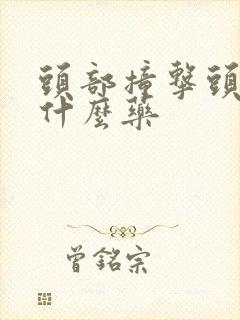 頭部撞擊頭
什麼藥
曾銘宗